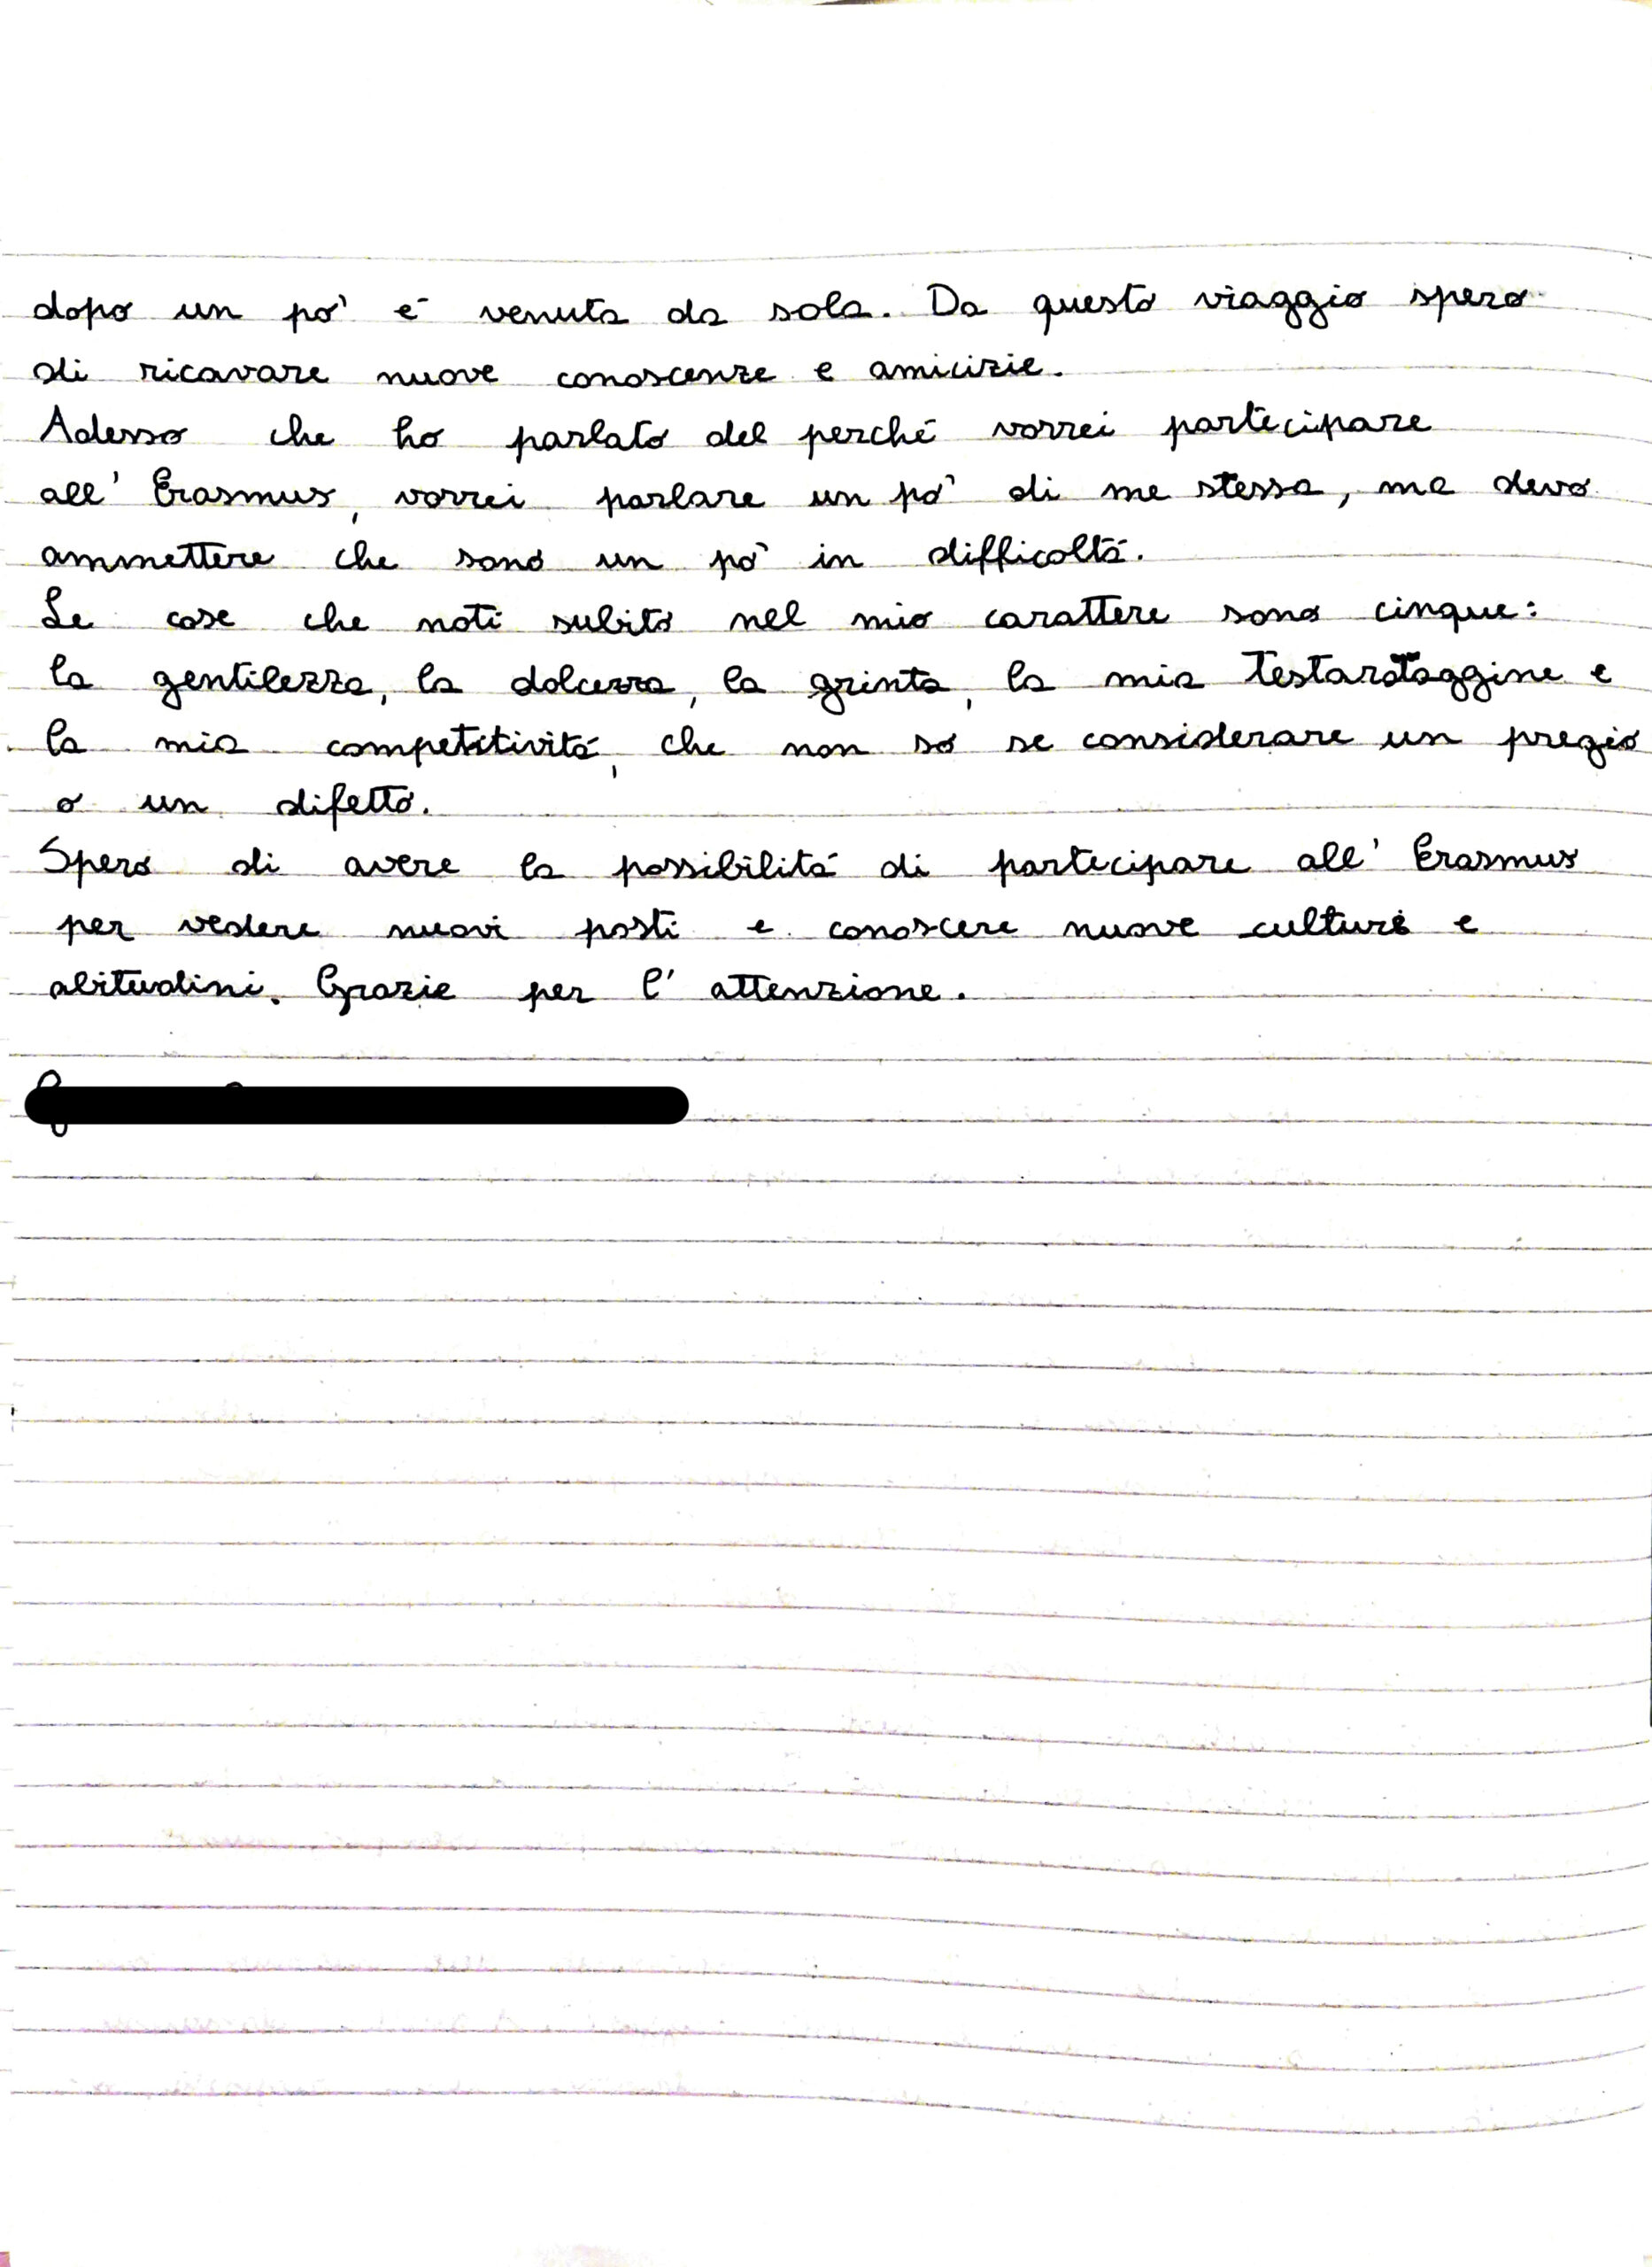 dopo un po' è venuta da sola. Da questo viaggio spero
di ricavare nuove conoscenze e amicizie.
Adesso che ho parlato del perché vorrei partecipare
all' Erasmus, vorrei parlare un po' di me stessa, ma devo
ammettere che sono un po' in difficoltá.
Le cose che noti subito nel mio carattere sono cinque:
la gentilezza, la dolcezza, la grinta, la mia testardaggine e
la mia competitivitá, che non so se considerare un pregio
o un difetto.
Spero di avere la possibilitá di partecipare all' Erasmus
per vedere nuovi posti e conoscere nuove culture e
abitudini. Grazie per l' attenzione.